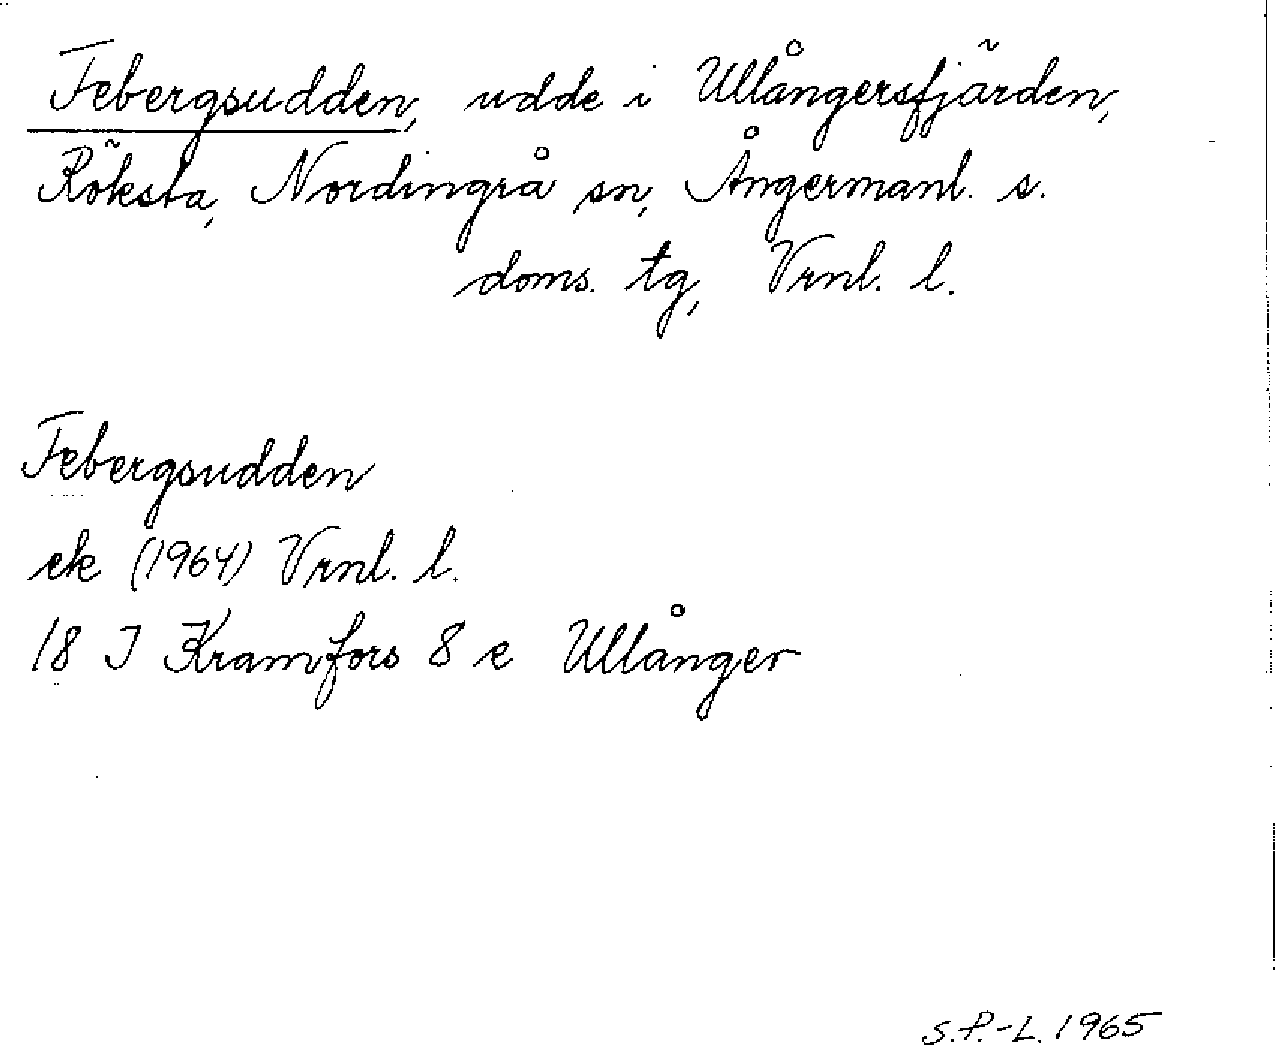 Febergsudden, udde i Ullångersfjärden,
Röksta, Nordingrå sn, Ångermanl. s.
doms. tg, Vrnl. l.
Febergsudden
ek (1964) Vrnl. l.
18 I Kramfors 8 e Ullånger
S.P.-L. 1965